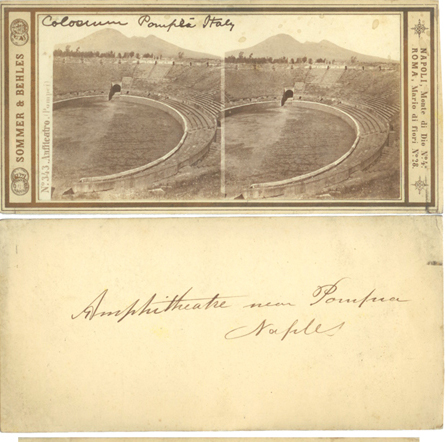 Colosium Pompéa Italy
SOMMER & BEHLES
Nº 343. Anfiteatro (Pompei)
NAPOLI, Monte di Dio Nº 4.
ROMA, Mario di fiori Nº 28.
Amphitheatre near Pompua
Naples